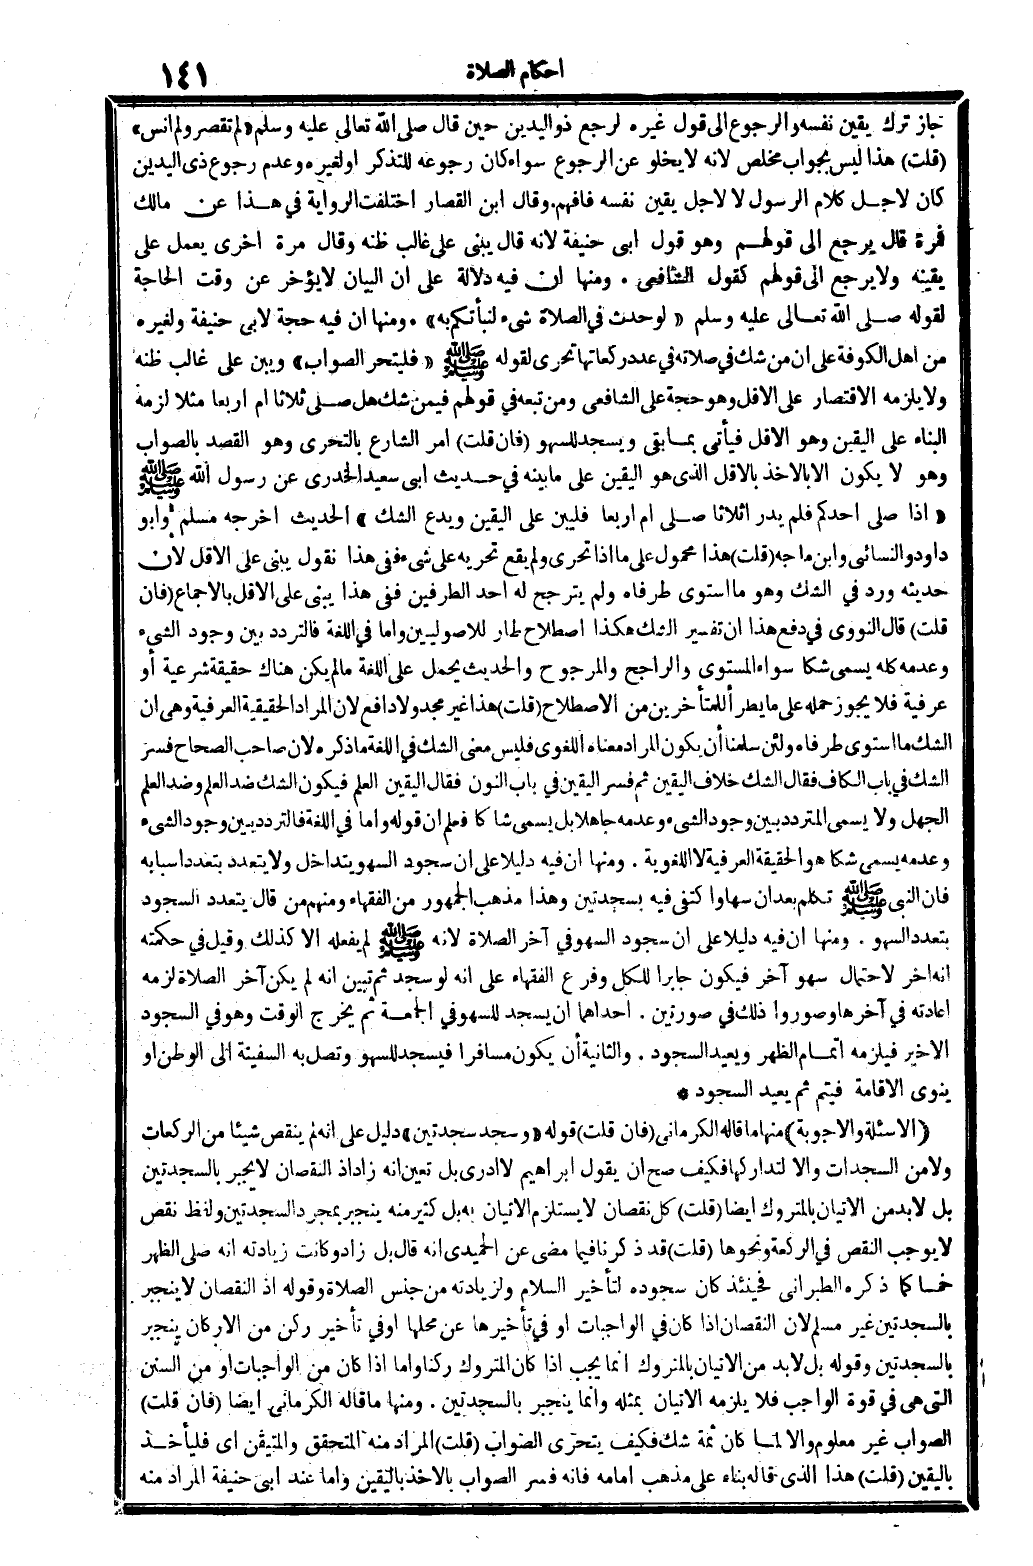 احكام الصلاة
١٤١
جاز ترك يقين نفسه والرجوع الى قول غيره لرجع ذو اليدين حين قال صلى الله تعالى عليه وسلم «لم تقصر ولم انس»
(قلت) هذا ليس بجواب مخلص لانه لا يخلو عن الرجوع سواء كان رجوعه للتذكر او لغيره وعدم رجوع ذى اليدين
كان لاجل كلام الرسول لا لاجل يقين نفسه فافهم. وقال ابن القصار اختلفت الرواية في هذا عن مالك
فمرة قال يرجع الى قولهم وهو قول ابى حنيفة لانه قال يبنى على غالب ظنه وقال مرة اخرى يعمل على
يقينه ولا يرجع الى قولهم كقول الشافعى. ومنها ان فيه دلالة على ان البيان لا يؤخر عن وقت الحاجة
لقوله صلى الله تعالى عليه وسلم «لو حدث في الصلاة شىء لنبأتكم به». ومنها ان فيه حجة لابى حنيفة ولغيره
من اهل الكوفة على ان من شك في صلاته في عدد ركعاتها تحرى لقوله ﷺ «فليتحر الصواب» ويبن على غالب ظنه
ولا يلزمه الاقتصار على الاقل وهو حجة على الشافعى ومن تبعه في قولهم فيمن شك هل صلى ثلاثا ام اربعا مثلا لزمه
البناء على اليقين وهو الاقل فيأتى بما بقى ويسجد للسهو (فان قلت) امر الشارع بالتخرى وهو القصد بالصواب
وهو لا يكون الا بالاخذ بالاقل الذى هو اليقين على ما بينه في حديث ابى سعيد الخدرى عن رسول الله ﷺ
«اذا صلى احدكم فلم يدر اثلاثا صلى ام اربعا فليبن على اليقين ويدع الشك» الحديث اخرجه مسلم وابو
داود والنسائى وابن ماجه (قلت) هذا محمول على ما اذا تحرى ولم يقع تحريه على شىء ففى هذا نقول يبنى على الاقل لان
حديثه ورد في الشك وهو ما استوى طرفاه ولم يترجح له احد الطرفين ففى هذا يبنى على الاقل بالاجماع (فان
قلت) قال النووى في دفع هذا ان تفسير الشك هكذا اصطلاح طار للاصوليين واما في اللغة فالتردد بين وجود الشىء
وعدمه كله يسمى شكا سواء المستوى والراجح والمرجوح والحديث يحمل على اللغة مالم يكن هناك حقيقة شرعية أو
عرفية فلا يجوز حمله على ما يطرأ للمتأخرين من الاصطلاح (قلت) هذا غير مجد ولا دافع لان المراد الحقيقية العرفية وهى ان
الشك ما استوى طرفاه ولئن سلمنا أن يكون المراد معناه اللغوى فليس معنى الشك في اللغة ما ذكره لان صاحب الصحاح فسر
الشك في باب الكاف فقال الشك خلاف اليقين ثم فسر اليقين في باب النون فقال اليقين العلم فيكون الشك ضد العلم وضد العلم
الجهل ولا يسمى المتردد بين وجود الشىء وعدمه جاهلا بل يسمى شاكا فعلم ان قوله واما في اللغة فالتردد بين وجود الشىء
وعدمه يسمى شكا هو الحقيقة العرفية لا اللغوية. ومنها ان فيه دليلا على ان سجود السهو يتداخل ولا يتعدد بتعدد اسبابه
فان النبى ﷺ تكلم بعد ان سها واكتفى فيه بسجدتين وهذا مذهب الجمهور من الفقهاء ومنهم من قال يتعدد السجود
بتعدد السهو. ومنها ان فيه دليلا على ان سجود السهو في آخر الصلاة لانه ﷺ لم يفعله الا كذلك وقيل في حكمته
انه اخر لاحتمال سهو آخر فيكون جابرا للكل وفرع الفقهاء على انه لو سجد ثم تبين انه لم يكن آخر الصلاة لزمه
اعادته في آخرها وصوروا ذلك في صورتين. احداهما ان يسجد للسهو في الجمعة ثم يخرج الوقت وهو في السجود
الاخير فيلزمه اتمام الظهر ويعيد السجود. والثانية أن يكون مسافرا فيسجد للسهو وتصل به السفينة الى الوطن او
ينوى الاقامة فيتم ثم يعيد السجود *
(الاسئلة والاجوبة) منها ما قاله الكرمانى (فان قلت) قوله «وسجد سجدتين» دليل على انه لم ينقص شيئا من الركعات
ولا من السجدات والا لتداركها فكيف صح ان يقول ابراهيم لا ادرى بل تعين انه زاد اذ النقصان لا يجبر بالسجدتين
بل لا بد من الاتيان بالمتروك ايضا (قلت) كل نقصان لا يستلزم الاتيان به بل كثير منه ينجبر بمجرد السجدتين ولفظ نقص
لا يوجب النقص في الركعة ونحوها (قلت) قد ذكرنا فيما مضى عن الحميدى انه قال بل زاد وكانت زيادته انه صلى الظهر
خمسا كما ذكره الطبرانى فحينئذ كان سجوده لتأخير السلام ولزيادته من جنس الصلاة وقوله اذ النقصان لا ينجبر
بالسجدتين غير مسلم لان النقصان اذا كان في الواجبات او في تأخيرها عن محلها او في تأخير ركن من الاركان ينجبر
بالسجدتين وقوله بل لا بد من الاتيان بالمتروك انما يجب اذا كان المتروك ركنا واما اذا كان من الواجبات او من السنن
التى هى في قوة الواجب فلا يلزمه الاتيان بمثله وانما ينجبر بالسجدتين. ومنها ما قاله الكرمانى ايضا (فان قلت)
الصواب غير معلوم والا لما كان ثمة شك فكيف يتحرى الصواب (قلت) المراد منه المتحقق والمتيقن اى فليأخذ
باليقين (قلت) هذا الذى قاله بناء على مذهب امامه فانه فسر الصواب بالاخذ باليقين واما عند ابى حنيفة المراد منه